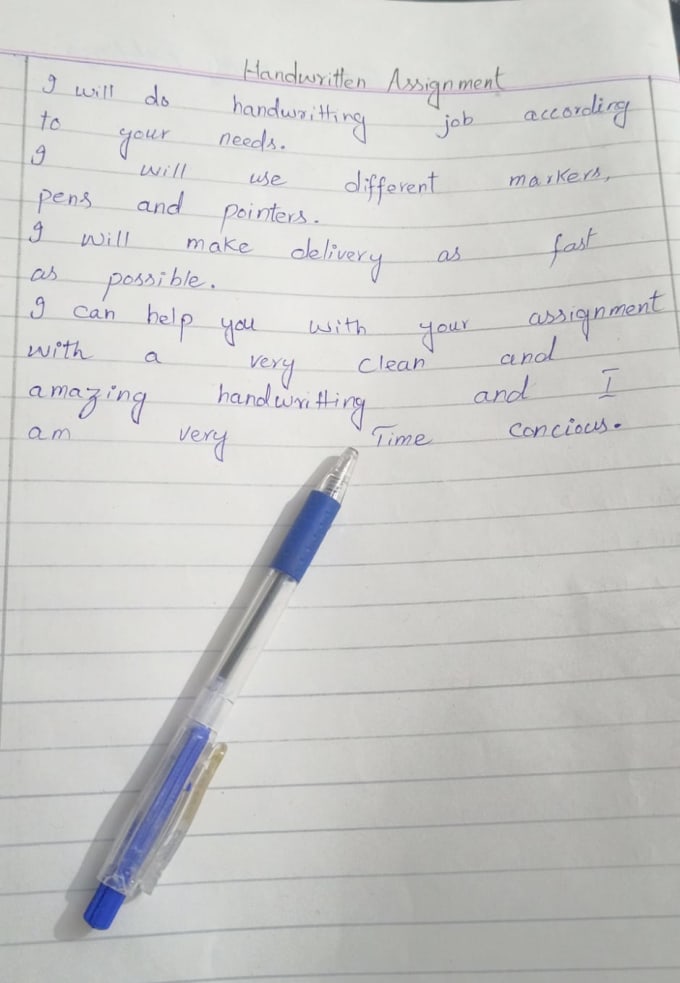 Handwritten Assignment
I will do handwritting job according
to your needs.
I will use different markers,
pens and pointers.
I will make delivery as fast
as possible.
I can help you with your assignment
with a very clean and
amazing handwritting and I
am very Time concious.